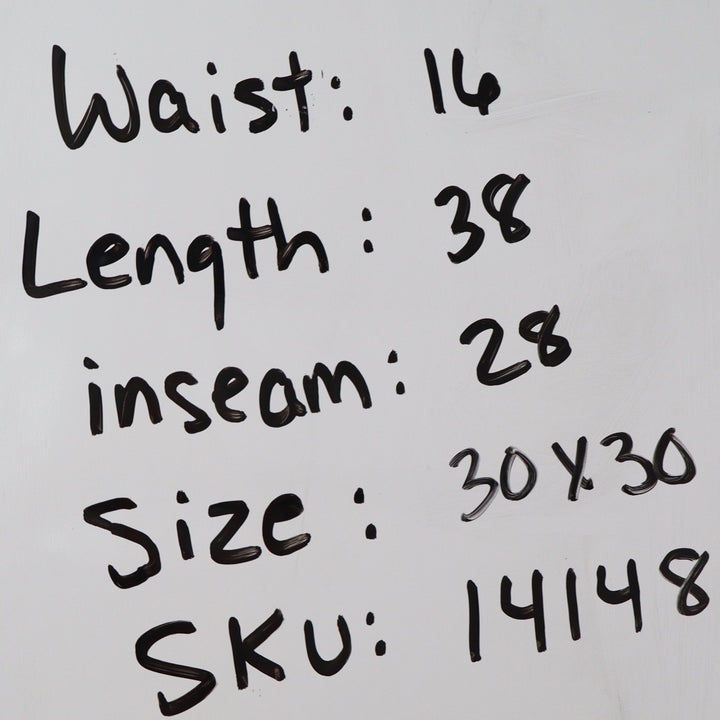 Waist: 16
Length: 38
inseam: 28
Size: 30X30
SKU: 14148